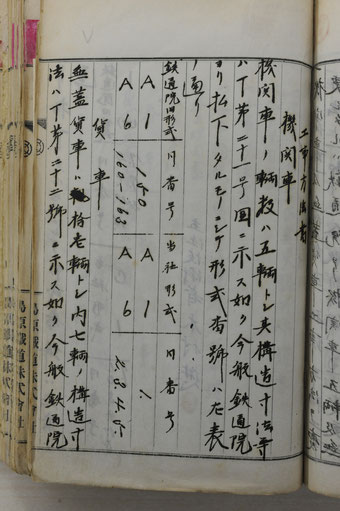 工事方法書
機関車
機関車ノ輌数ハ五輌トシ其構造寸法等
ハ丁第二十一号図ニ示ス如ク今般鉄道院
ヨリ払下タルモノニシテ形式番号ハ左表
ノ通リ
鉄道院旧形式 旧番号 当社形式 旧番号
A1 150 A1 1
A6 160-163 A6 2.3.4.5
貨車
無蓋貨車ハ拾壱輌トシ内七輌ノ構造寸
法ハ丁第二十二号ニ示ス如ク今般鉄道院
島原鉄道株式会社